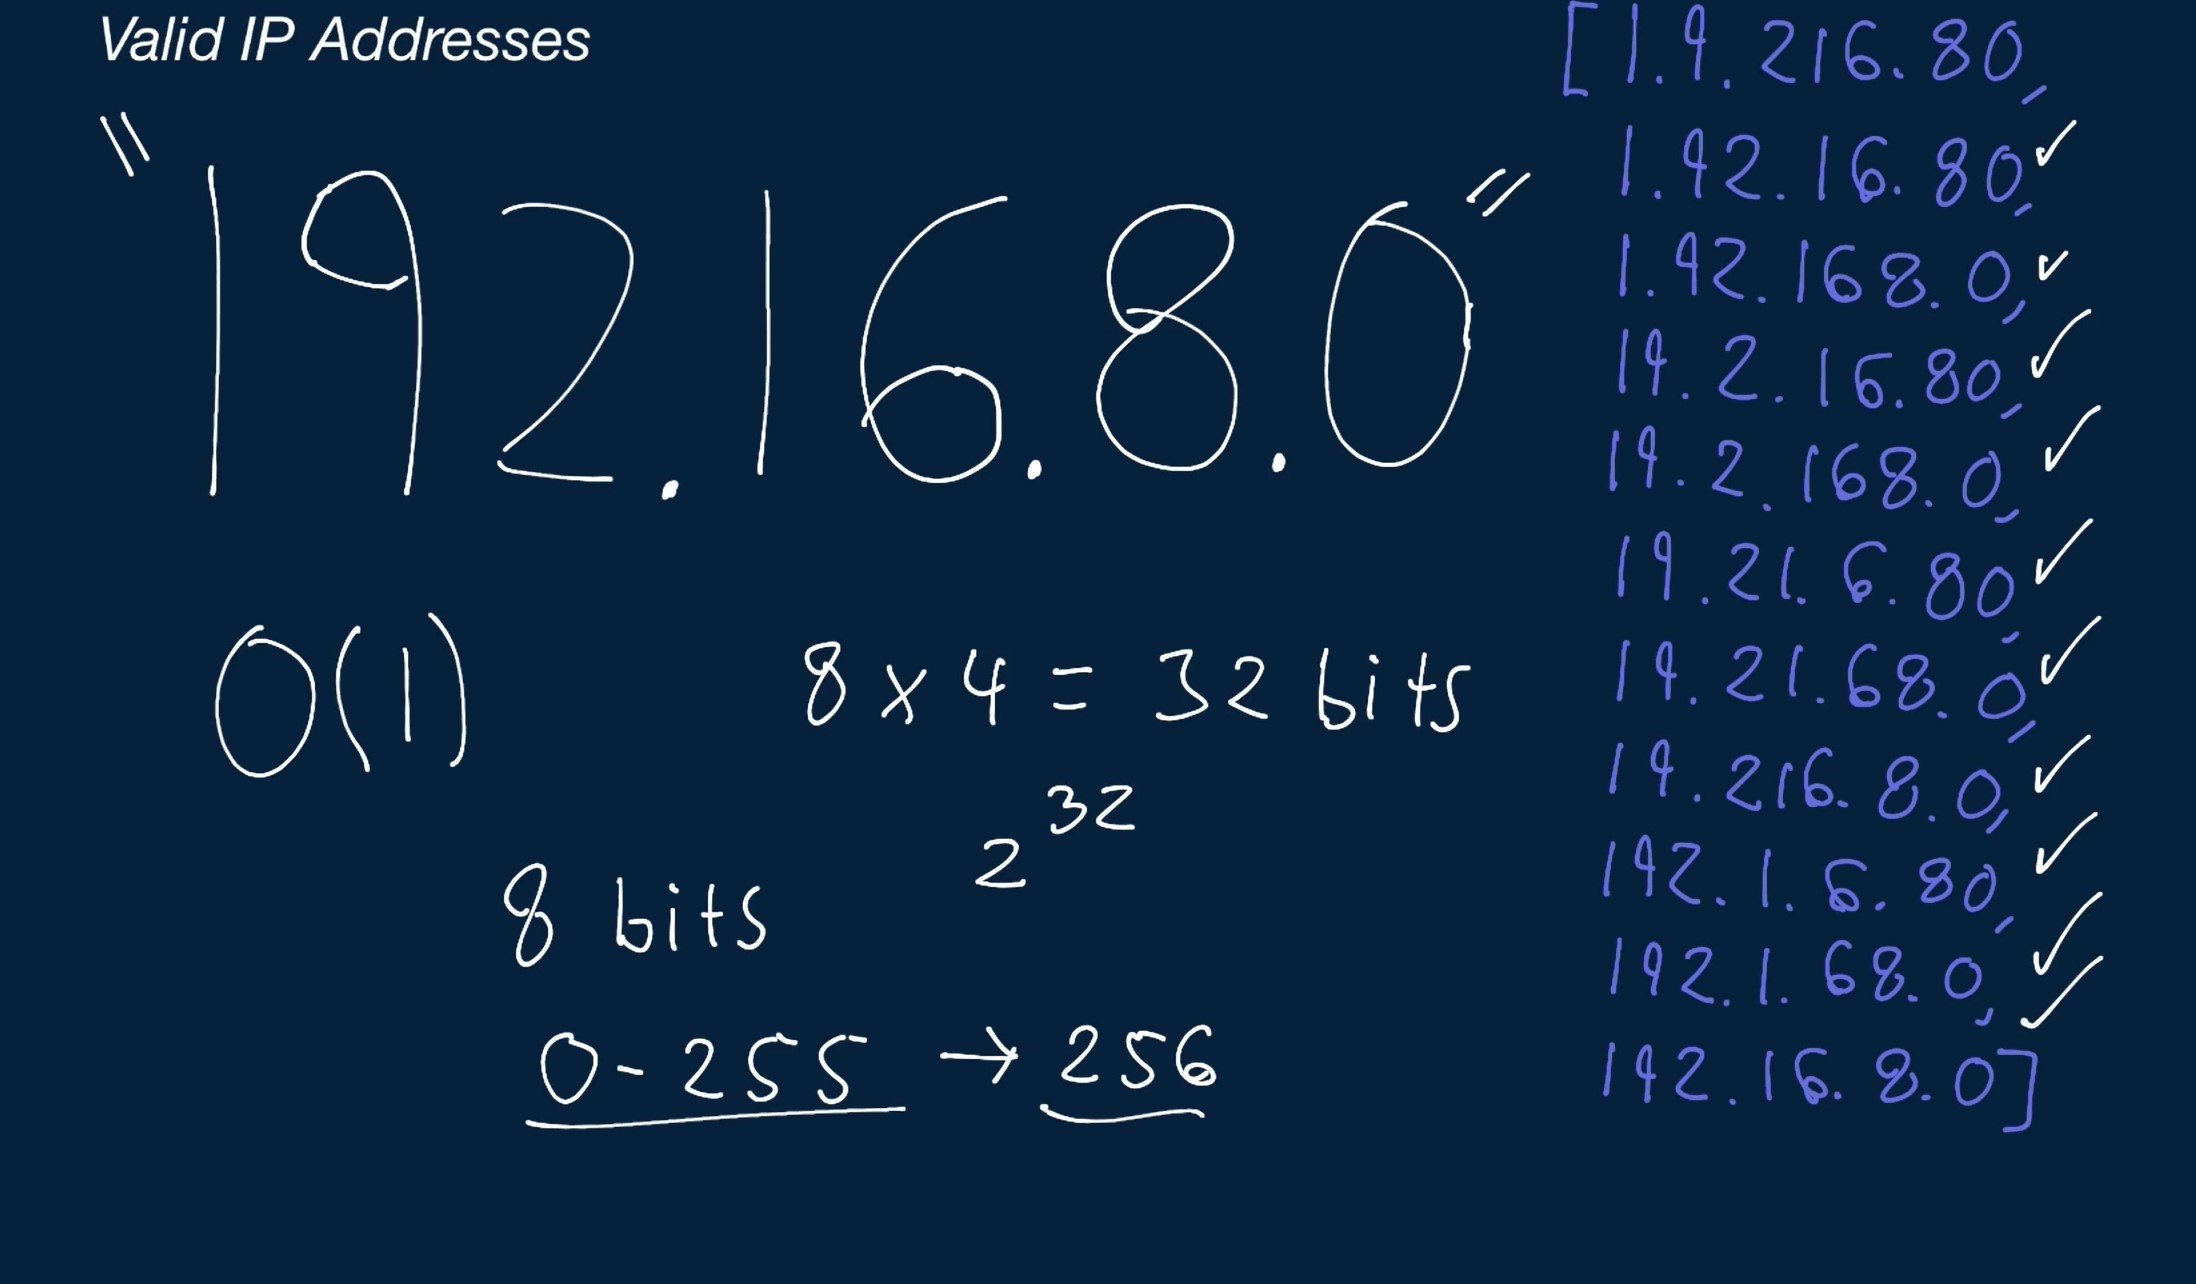 Valid IP Addresses
"192.16.8.0"
O(1)
8 x 4 = 32 bits
2^32
8 bits
0-255 → 256
[1.9.216.80,
1.92.16.80, ✓
1.92.168.0, ✓
19.2.16.80, ✓
19.2.168.0, ✓
19.21.6.80, ✓
19.21.68.0, ✓
19.216.8.0, ✓
192.1.6.80, ✓
192.1.68.0, ✓
192.16.8.0] ✓